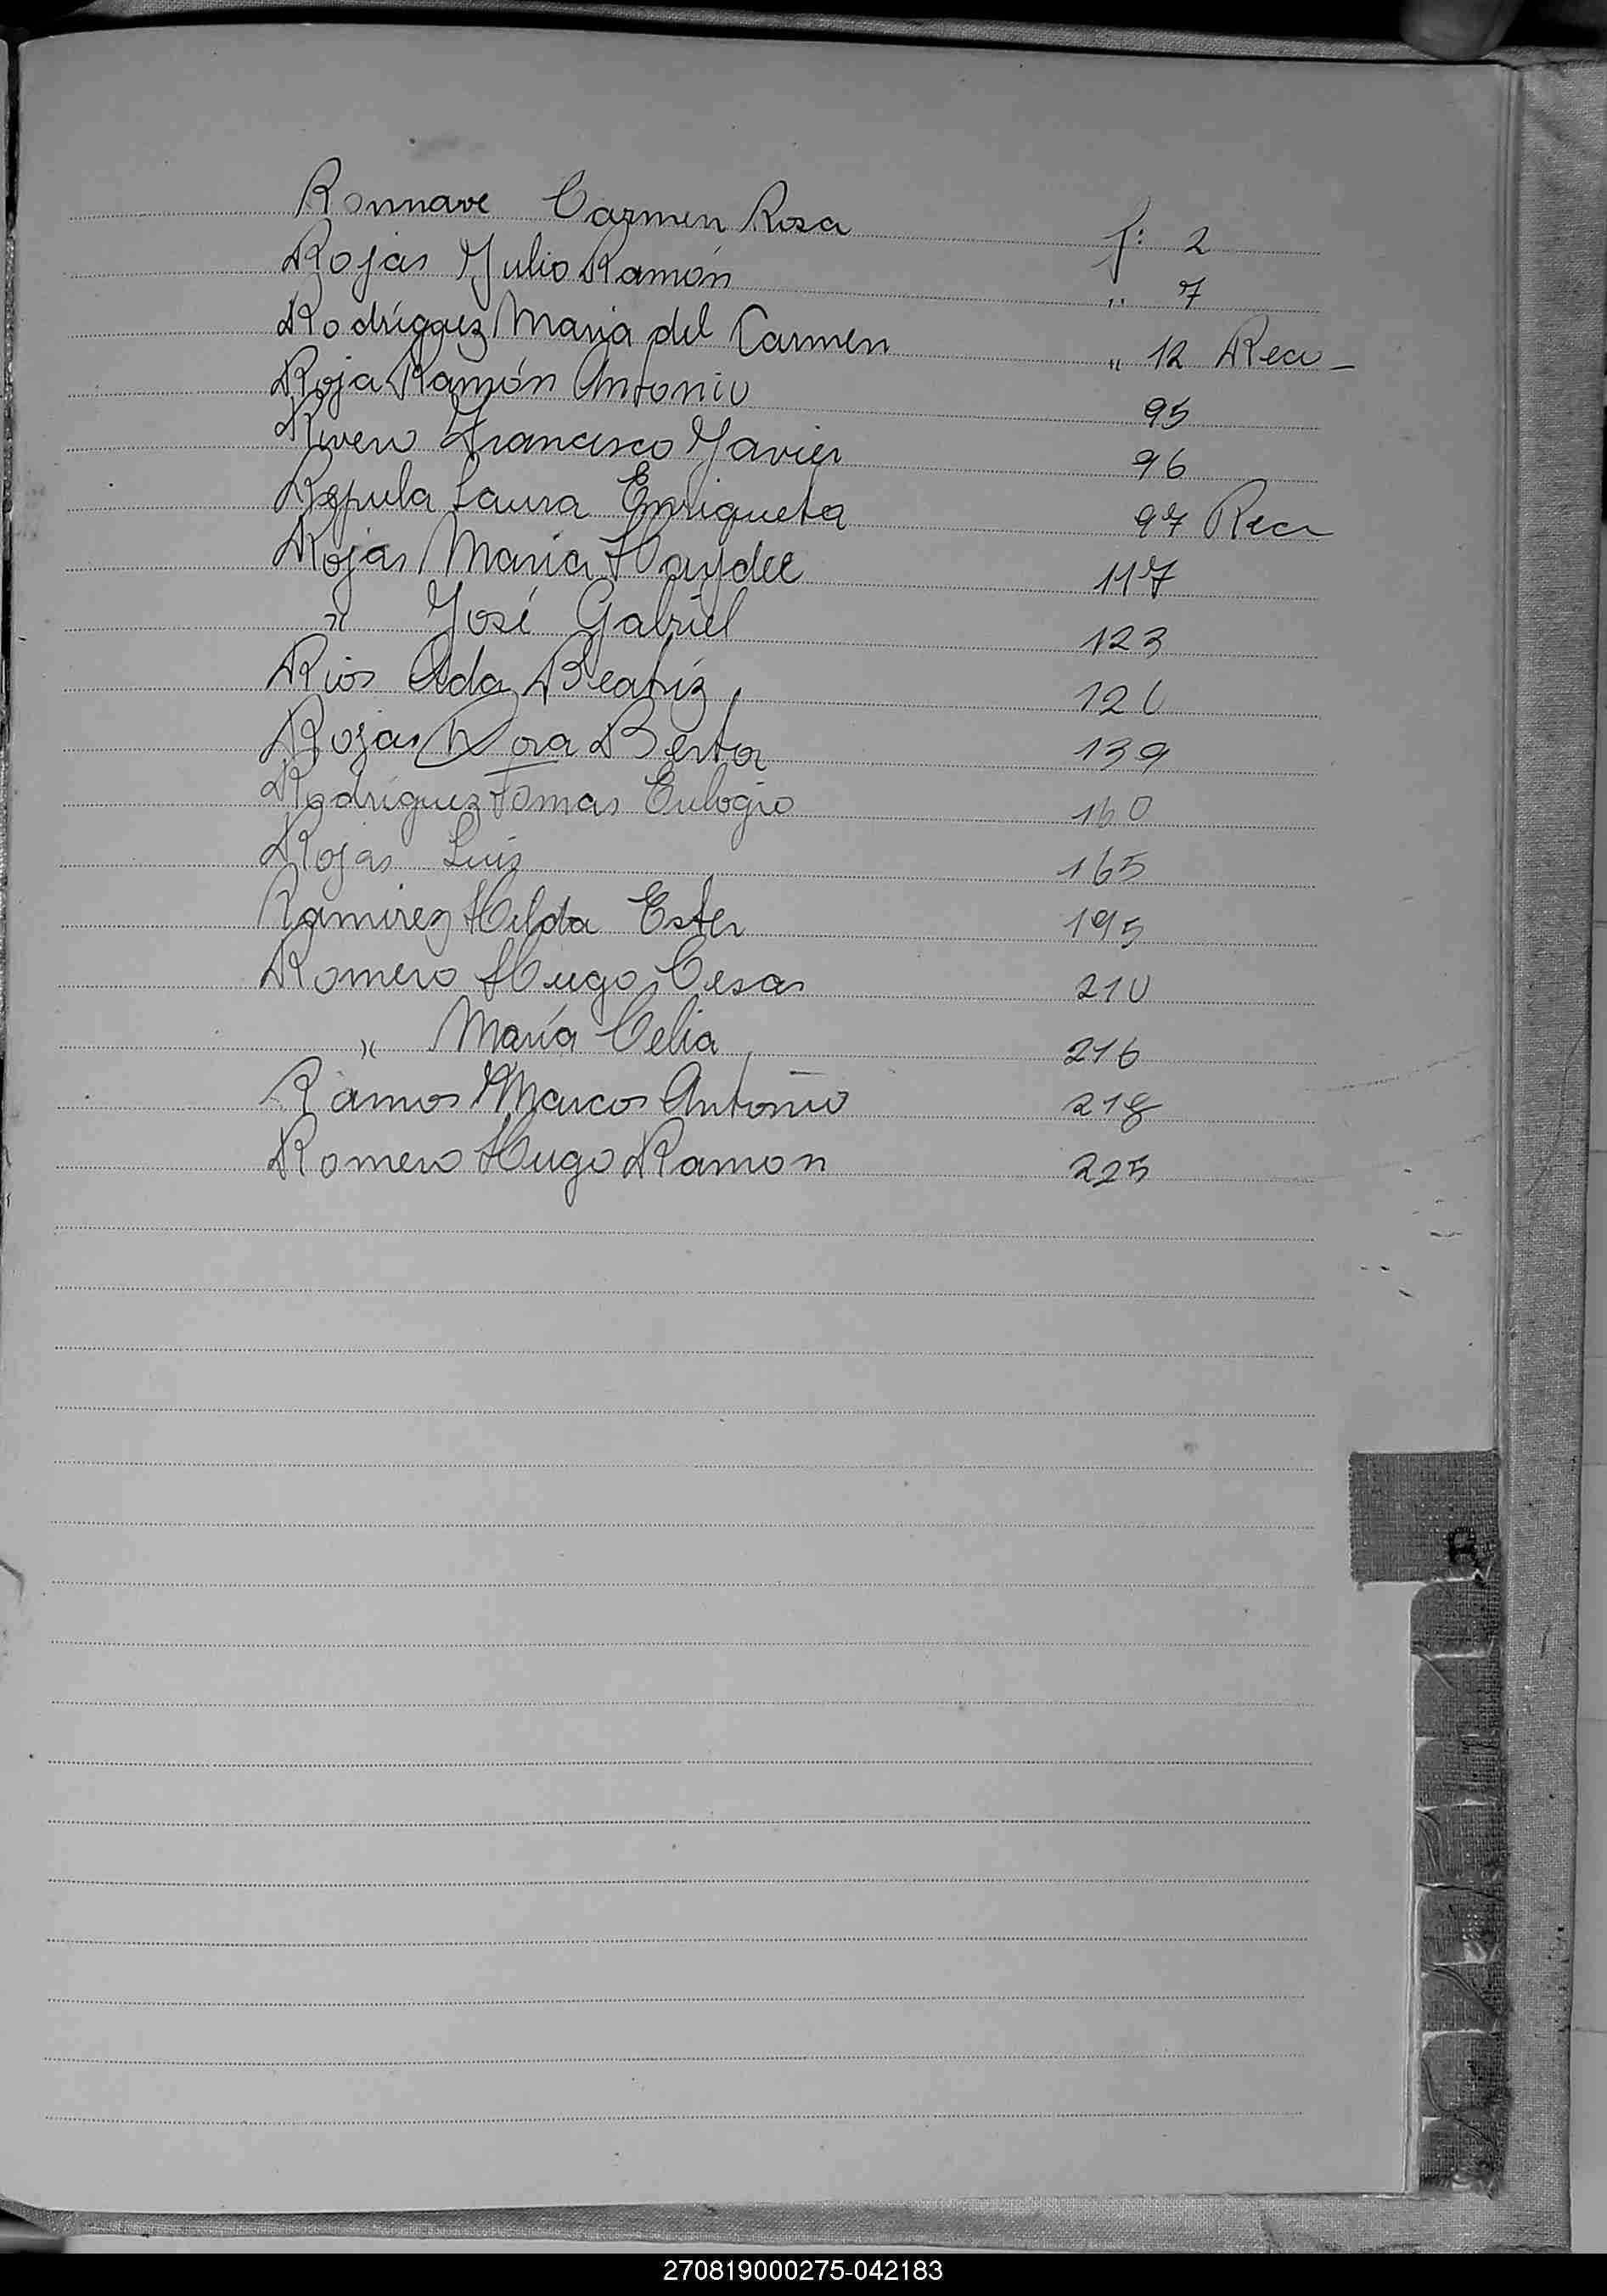 Ronnave Carmen Rosa f: 2
Rojas Julio Ramón " 7
Rodríguez Maria del Carmen " 12 Rea -
Roja Ramón Antonio 95
Rivero Francisco Javier 96
Repula Laura Enriqueta 97 Rea
Rojas María Haydee 117
" José Gabriel 123
Rios Ada Beatriz 126
Rojas Dora Berta 139
Rodriguez Tomas Eulogio 160
Rojas Luis 165
Ramirez Hilda Ester 195
Romero Hugo Cesar 210
" María Celia 216
Ramos Marcos Antonio 218
Romero Hugo Ramon 225
R
270819000275-042183